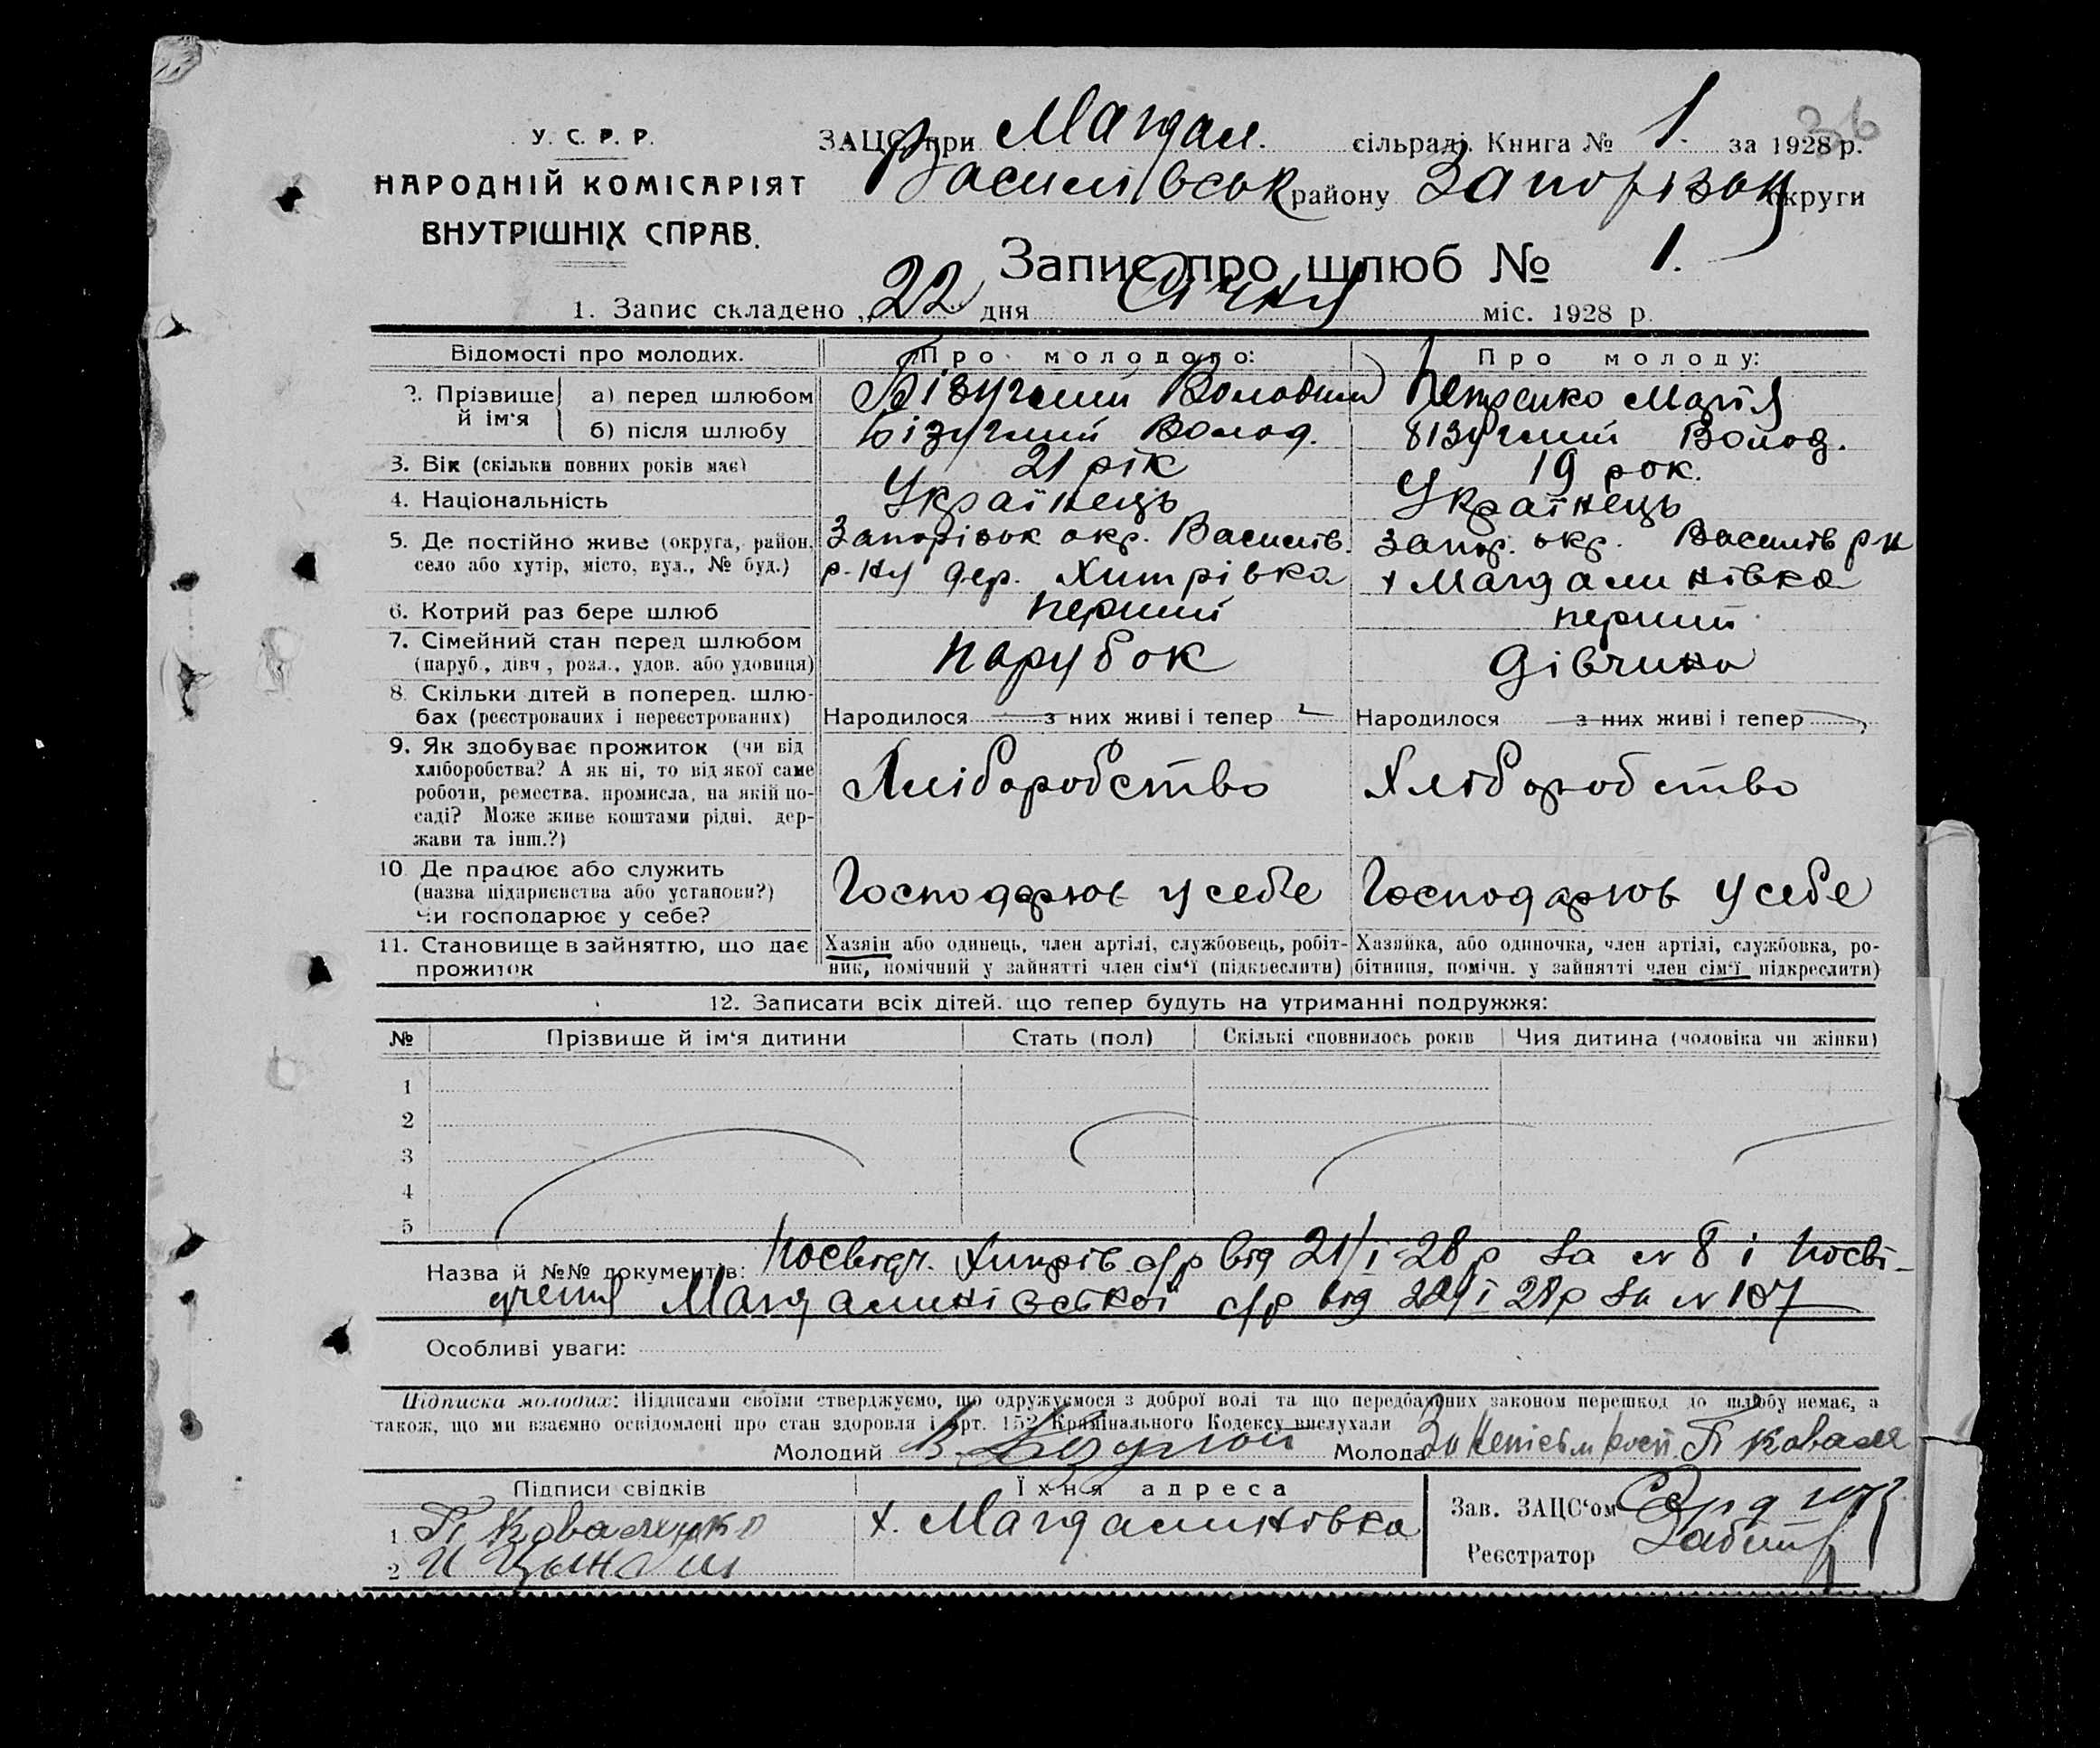 36
У. С. Р. Р.
НАРОДНІЙ КОМІСАРІЯТ
ВНУТРІШНІХ СПРАВ.
ЗАЦС при Магдал. сільраді. Книга № 1. за 1928 р.
Василівськ району Запорізьк округи
Запис про шлюб № 1.
1. Запис складено „22 дня Січня міс. 1928 р.
Відомості про молодих. Про молодого: Про молоду:
2. Прізвище й ім‘я а) перед шлюбом Бізучий Володим Петренко Марія
б) після шлюбу Бізучий Волод. Бізучий Волод.
3. Вік (скільки повних років має) 21 рік 19 рок.
4. Національність Українець Українець
5. Де постійно живе (округа, район, Запорізьк окр. Василів. Запор. окр. Василів р н
село або хутір, місто, вул., № буд.) р-ну дер. Хитрівка х Магдалинівка
6. Котрий раз бере шлюб перший перший
7. Сімейний стан перед шлюбом
(паруб., дівч., розл., удов. або удовиця) парубок дівчина
8. Скільки дітей в поперед. шлю-
бах (реєстрованих і нереєстрованих) Народилося — з них живі і тепер — Народилося — з них живі і тепер —
9. Як здобуває прожиток (чи від
хліборобства? А як ні, то від якої саме Хліборобство Хліборобство
роботи, ремества, промисла, на якій по-
саді? Може живе коштами рідні, дер-
жави та інш.?)
10. Де працює або служить
(назва підприємства або установи?) Господарює у себе Господарює у себе
Чи господарює у себе?
11. Становище в зайняттю, що дає Хазяїн або одинець, член артілі, службовець, робіт- Хазяйка, або одиночка, член артілі, службовка, ро-
прожиток ник, помічний у зайнятті член сім‘ї (підкреслити) бітниця, помічн. у зайнятті член сім‘ї підкреслити)
12. Записати всіх дітей, що тепер будуть на утриманні подружжя:
№ Прізвище й ім‘я дитини Стать (пол) Скількі сповнилось років Чия дитина (чоловіка чи жінки)
1
2
3
4
5
Назва й №№ документів: Посвідч. Хитрів. с/р від 21/I-28 р за № 8 і посві-
дчення Магдалинівської с/р від I 28р за № 107
Особливі уваги:
Підписка молодих: Підписами своїми стверджуємо, що одружуємося з доброї волі та що передбачених законом перешкод до шлюбу немає, а
також, що ми взаємно освідомлені про стан здоровля і арт. 152 Кримінального Кодексу вислухали
Молодий В. Молода За неписьм П Ковале
Підписи свідків Їхня адреса
1 П Коваленко х. Магдалинівка Зав. ЗАЦС‘ом
2 И Реєстратор